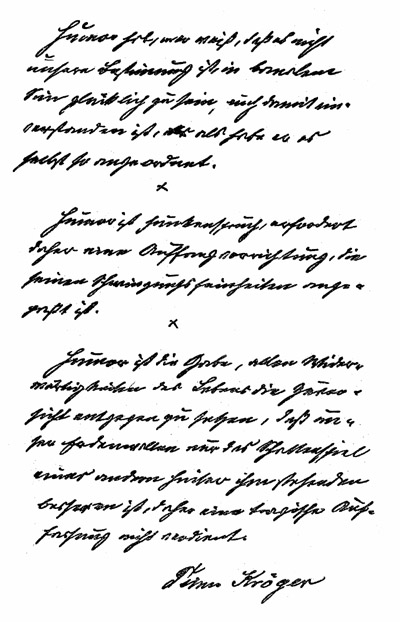 Humor hat, wer weiß, daß es nicht
unsere Bestimmung ist, in banalem
Sinn glücklich zu sein, und damit ein-
verstanden ist, als habe er es
selbst so angeordnet.
x
Humor ist Funkenspruch, erfordert
daher eine Auffangvorrichtung, die
seinen Schwingungsfeinheiten ange-
paßt ist.
x
Humor ist die Gabe, allen Wider-
wärtigkeiten des Lebens die Zuver-
sicht entgegen zu setzen, daß un-
ser Erdenwallen nur das Schattenspiel
eines andern hinter ihm stehenden
besseren ist, daher eine tragische Auf-
fassung nicht verdient.
Timm Kröger